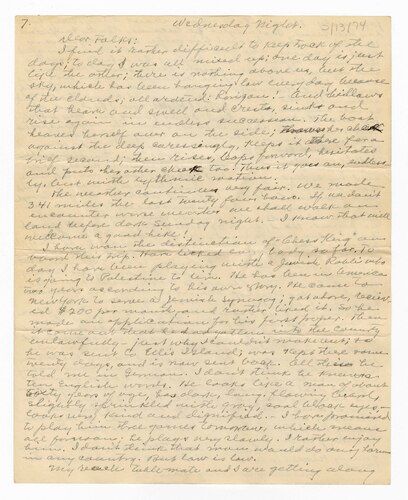 7. Wednesday Night. 3/13/74
Dear Folks:
I find it rather difficult to keep track of the
days; to-day I was all mixed up; one day is just
like the other; there is nothing above us, but the
sky, which has been hanging low every day because
of the clouds; all around: horizon; And billows
that foam and swell and crests, sinks and
rise again in endless succession. The boat
heaves herself over on the side; her cheek
against the deep caressingly, keeps it there for a
brief second; then rises, leaps forward, hesitates
and puts her other cheek too. Thus it goes on, endless-
ly, but with rythmic motion.
The weather continues very fair. We made
341 miles the last twenty four hours. If we don't
encounter worse weather we shall walk on
land before dark Sunday night. I know that will
welcome a good hike!
I have won the distinction of "Chess King" on
board this ship. Have licked everybody so far. To-
day I have been playing with a Jewish Rabbi who
is going to Palestine to live. He has been in America
two years according to his own story. He came to
New York to serve a Jewish synagog; got above, receiv-
ed $200 per month, and rather liked it. So he
made an application for his first papers. Then
it came out that he had gotten into the country
unlawfully - just why I couldn't make out; so
he was sent to Ellis Island; was kept there some
twenty days, and is now sent back. All this he
told me in German. I don't think he knows
ten English words. He looks like a man of about
sixty years of age; has long, flowing beard,
slightly sprinkled with grey; soft brown eyes -
looks very kind and dignified. I have promised
to play him three games tomorrow, which means
all forenoon; he plays very slowly. I rather enjoy
him. I don't think that man would do any harm
in any country. But law is law.
My table mate and I are getting along